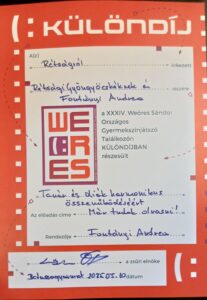 KÜLÖNDÍJ
A(z)
Rétságról érkezett
Rétsági Gyöngyöcskéknek és részére
Fontányi Andrea
WERES
a XXXIV. Weöres Sándor
Országos
Gyermekszínjátszó
Találkozón
KÜLÖNDÍJBAN
részesült
Tanár és diák harmonikus
együttműködéséért
Az előadás címe Már tudok olvasni!
Rendezője Fontányi Andrea
a zsűri elnöke
Balassagyarmat 2025.05.10 dátum